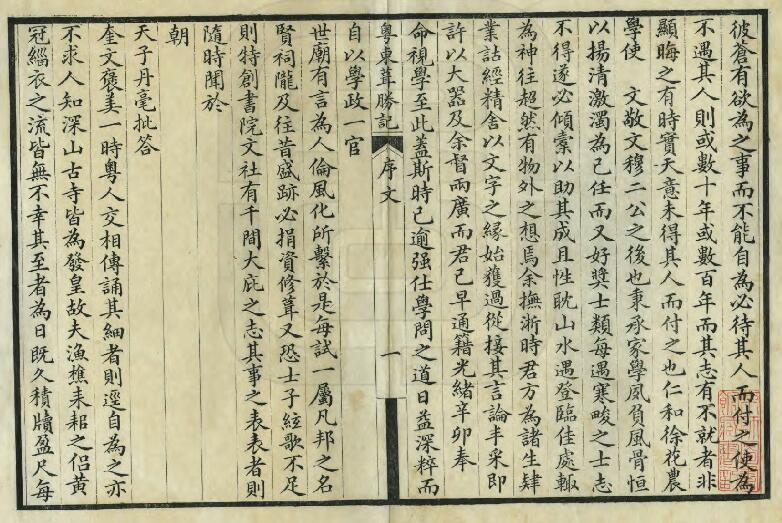 彼蒼有欲為之事而不能自為必待其人而付之使為
不遇其人則或數十年或數百年而其志有不就者非
顯晦之有時實天意未得其人而付之也仁和徐花農
學使　文敬文穆二公之後也秉承家學夙負風骨恒
以揚清激濁為己任而又好獎士類每遇寒畯之士志
不得遂必傾橐以助其成且性耽山水遇登臨佳處輙
為神往超然有物外之想焉余撫浙時君方為諸生肄
業詁經精舍以文字之緣始獲過從接其言論丰采即
許以大器及余督兩廣而君已早通籍光緒辛卯奉
命視學至此蓋斯時已逾强仕學問之道日益深粹而
粵東葺勝記　序文　一
自以學政一官
世廟有言為人倫風化所繫於是每試一屬凡邦之名
賢祠隴及往昔盛跡必捐資修葺又恐士子絃歌不足
則特創書院文社有千間大庇之志其事之表表者則
隨時聞於
朝
天子丹毫批答
奎文褒美一時粵人交相傳誦其細者則逕自為之亦
不求人知深山古寺皆為發皇故夫漁樵耒耜之侶黃
冠緇衣之流皆無不幸其至者為日既久積牘盈尺每